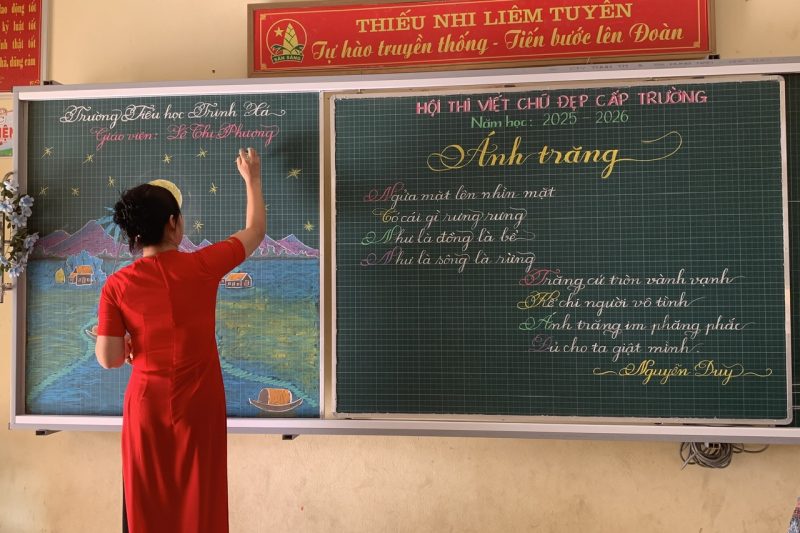 THIẾU NHI LIÊM TUYỀN
Tự hào truyền thống - Tiến bước lên Đoàn
SẴN SÀNG
Trường Tiểu học Trịnh Xá
Giáo viên: Lê Thị Phượng
HỘI THI VIẾT CHỮ ĐẸP CẤP TRƯỜNG
Năm học: 2025 - 2026
Ánh trăng
Ngửa mặt lên nhìn mặt
Có cái gì rưng rưng
Như là đồng là bể
Như là sông là rừng
Trăng cứ tròn vành vạnh
Kể chi người vô tình
Ánh trăng im phăng phắc
Đủ cho ta giật mình.
Nguyễn Duy